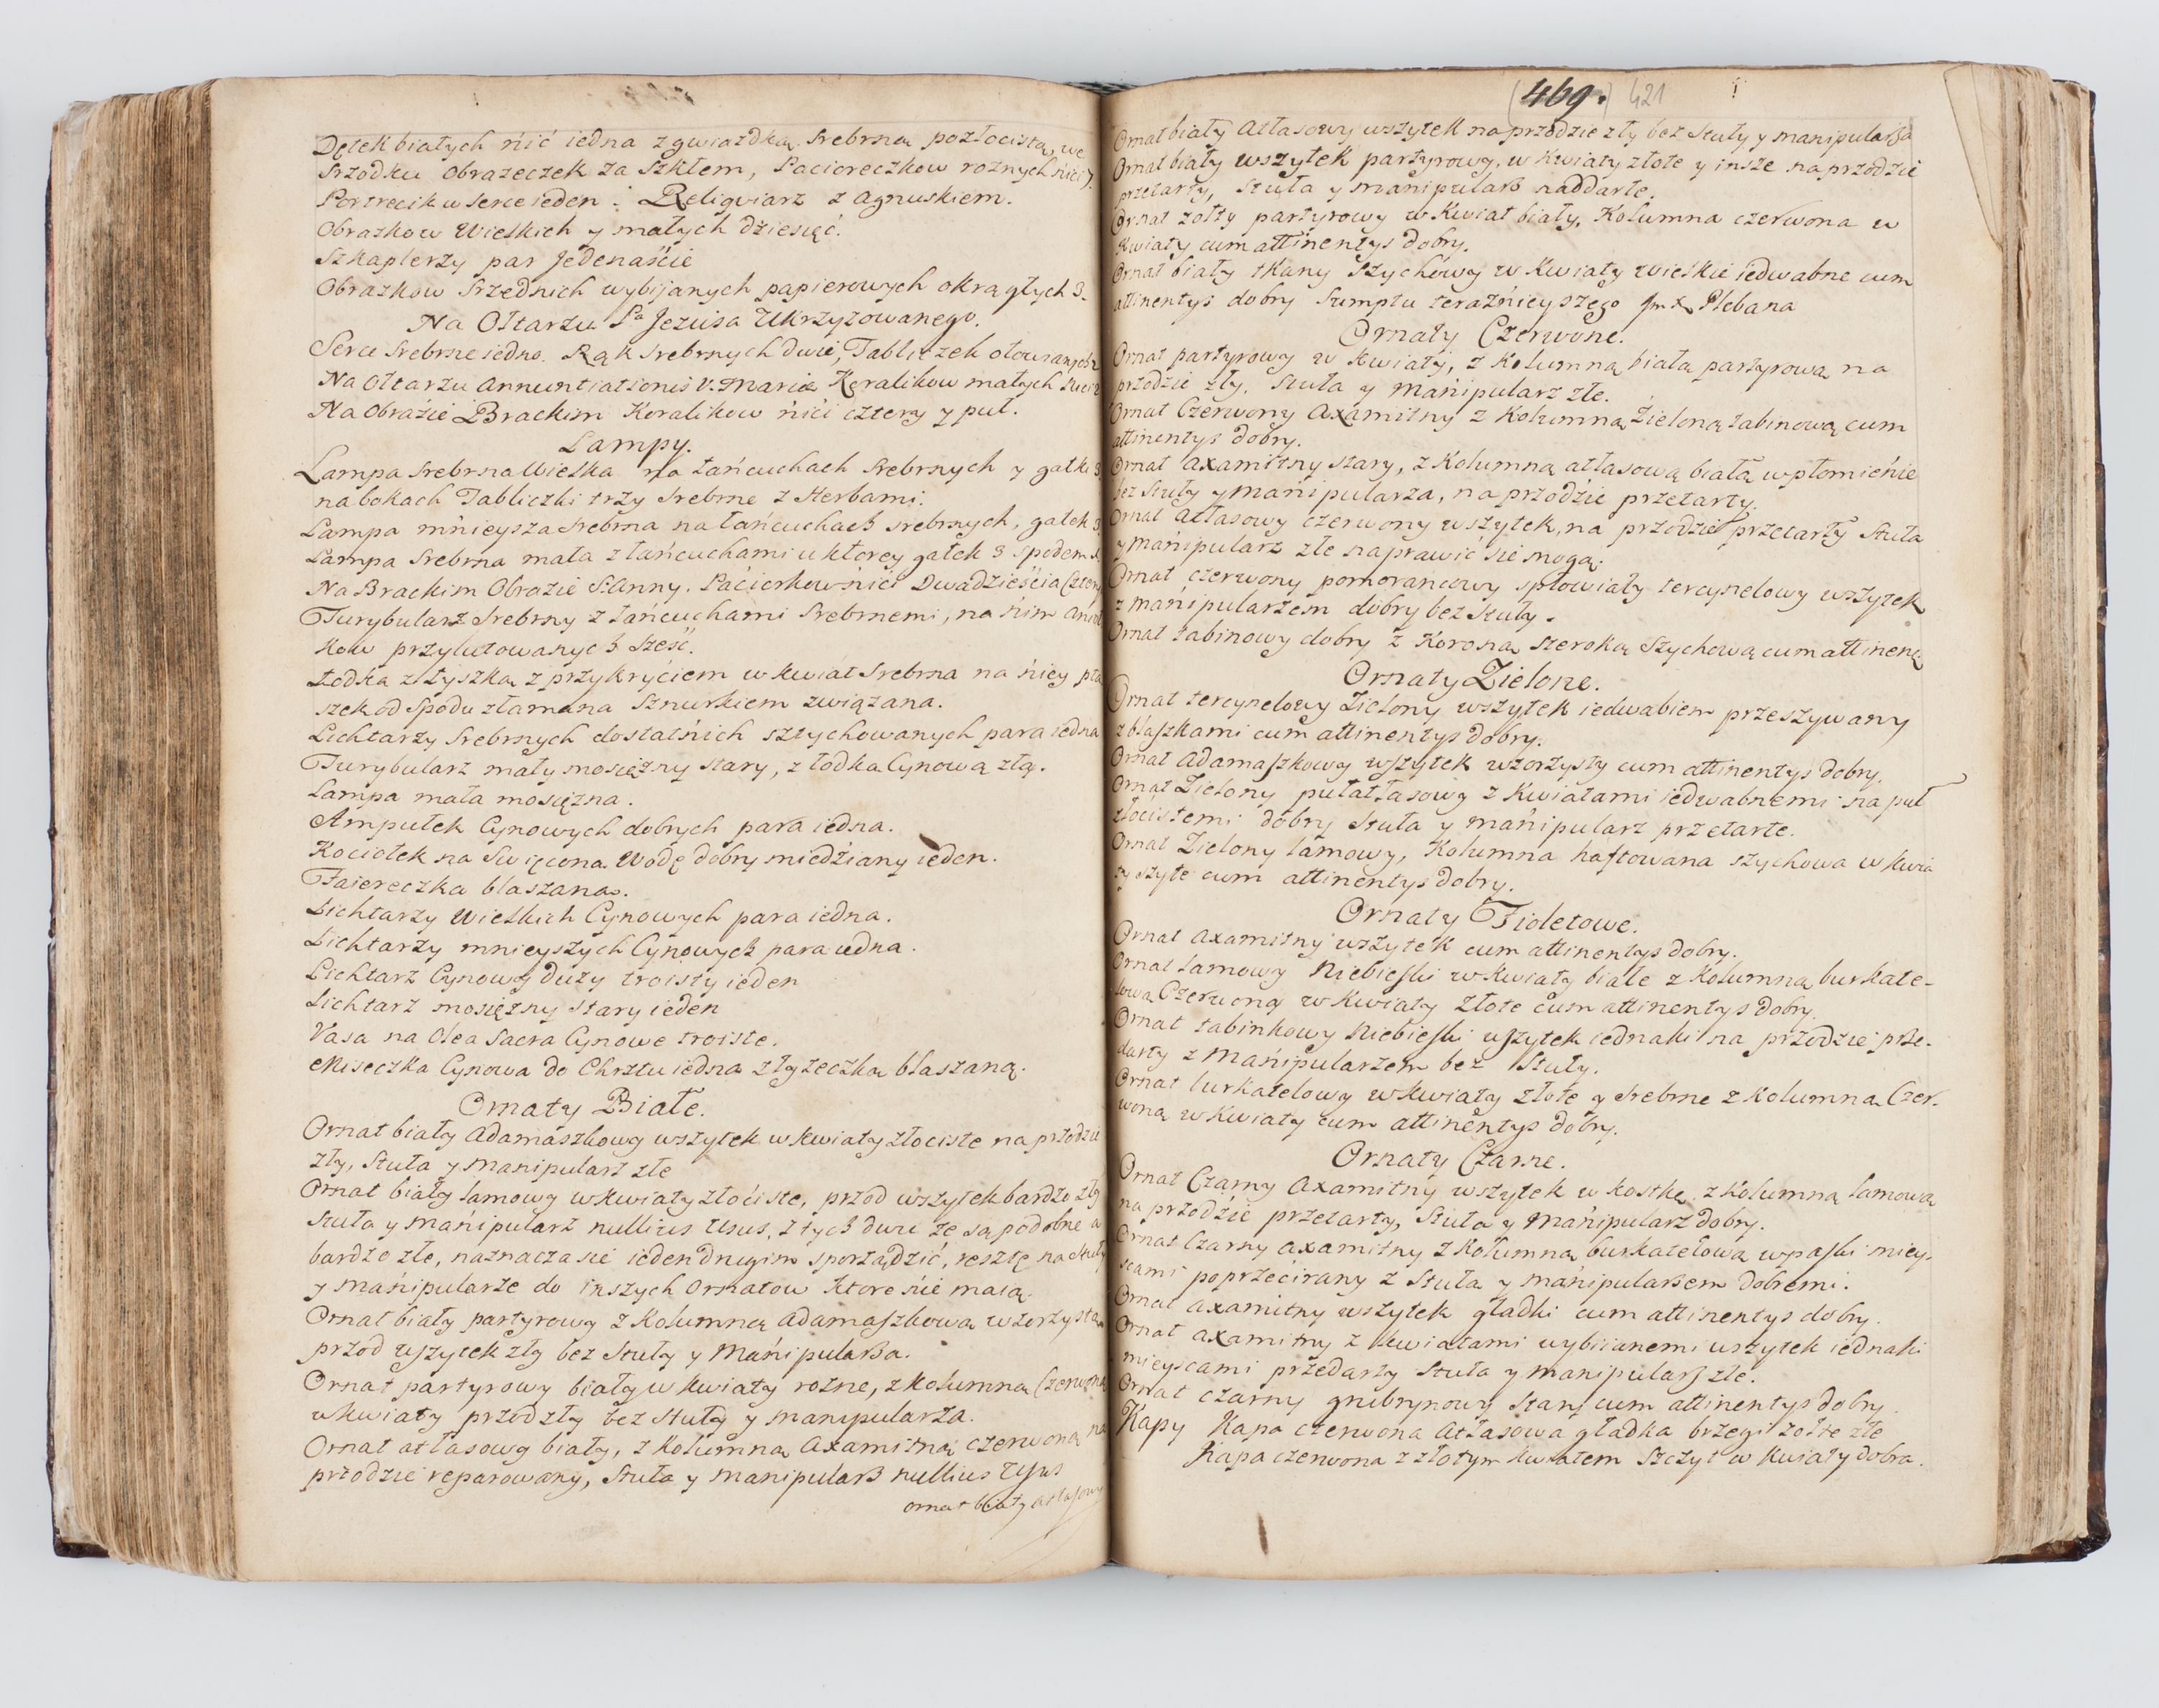 Dętek białych nić iedna z gwiazdką srebrną pozłocistą, we
srzodku obrazeczek za szkłem, Pacioreczkow roznych nici 7.
Portrecik w serce ieden. Religwiarz z Agnuskiem.
Obrazkow Wielkich y małych dziesięć.
Szkaplerzy par Jedenaście
Obrazkow srzednich wybijanych papierowych okrągłych 3.
Na Ołtarzu Pa Jezusa Ukrzyzowanego.
Serce srebrne iedno. Rąk srebrnych dwie, Tabliczek ołowianych 2
Na Ołtarzu Annuntiationis V. Mariæ Koralikow małych
Na Obrazie Brackim Koralikow nici cztery y puł.
Lampy.
Lampa srebrna Wielka na łańcuchach srebrnych y gałki 3
na bokach Tabliczki trzy srebrne z Herbami.
Lampa mnieysza srebrna na łańcuchach srebrnych, gałek 3
Lampa srebrna mała z łańcuchami u ktorey gałek 3 spodem
Na Brackim Obrazie S. Anny. Pacierkow nici Dwadzieścia Cztery
Turybularz srebrny z łańcuchami srebrnemi, na nim Anioł
kow przylutowanych sześć.
Łodka z łyszką z przykryciem w kwiat srebrna na niey pta
szek od spodu złamana sznurkiem związana.
Lichtarzy srebrnych dostatnich sztychowanych para iedna
Turybularz mały mosiężny stary, z łodką Cynową złą.
Lampa mała mosiężna.
Ampułek Cynowych dobrych para iedna.
Kociołek na Swięconą Wodę dobry miedziany ieden.
Faiereczka blaszana.
Lichtarzy Wielkich Cynowych para iedna.
Lichtarzy mnieyszych Cynowych para iedna.
Lichtarz Cynowy duży troisty ieden
Lichtarz mosiężny stary ieden
Vasa na Olea Sacra Cynowe troiste.
Miseczka Cynowa do Chrztu iedna z łyżeczką blaszaną.
Ornaty Białe.
Ornat biały Adamaszkowy wszytek w kwiaty złociste na przodzie
zły, Stuła y manipularz złe
Ornat biały lamowy w kwiaty złociste, przod wszytek bardzo zły
Stuła y manipularz nullius Usus, z tych dwu że są podobne a
bardzo złe, naznacza sie ieden drugim sporządzić, resztę na stuły
y manipularze do inszych Ornatow ktore nie maią.
Ornat biały partyrowy z Kolumną Adamaszkową wzorzystą
przod wszytek zły bez Stuły y Manipularza.
Ornat partyrowy biały w kwiaty rozne, z kolumną Czerwoną
w kwiaty przod zły bez stuły y manipularza.
Ornat atłasowy biały, z Kolumną Axamitną czerwoną na
przodzie reparowany, Stuła y manipularz nullius Usus
ornat biały atłasowy
469. 421
Ornat biały Atłasowy wszytek na przodzie zły bez Stuły y manipularza
Ornat biały wszytek partyrowy, w kwiaty złote y insze na przodzie
przetarty, Stuła y manipularz naddarte.
Ornat żołty partyrowy w Kwiat biały, Kolumna czerwona w
Kwiaty cum attinentys dobry.
Ornat biały tkany Szychowy w Kwiaty wielkie iedwabne cum
attinentys dobry Sumptu teraznieyszego Jm X Plebana
Ornaty Czerwone.
Ornat partyrowy w kwiaty, z Kolumną białą partyrową na
przodzie zły. Stuła y Manipularz złe.
Ornat Czerwony Axamitny z Kolumną Zieloną tabinową cum
attinentys dobry.
Ornat Axamitny stary, z Kolumną atłasową białą w płomienie
bez Stuły y manipularza, na przodzie przetarty.
Ornat Atłasowy czerwony wszytek, na przodzie przetarty Stuła
y manipularz złe naprawić sie mogą.
Ornat czerwony pomorancowy spłowiały tercynelowy wszytek
z manipularzem dobry bez Stuły.
Ornat tabinowy dobry z Koroną szeroką Szychową cum attinen
Ornaty Zielone.
Ornat tercynelowy Zielony wszytek iedwabiem przeszywany
z blaszkami cum attinentys dobry.
Ornat Adamaszkowy wszytek wzorzysty cum attinentys dobry.
Ornat Zielony pułatłasowy z Kwiatami iedwabnemi na puł
złocistemi dobry Stuła y manipularz przetarte.
Ornat Zielony lamowy, Kolumna haftowana szychowa w kwia
ty szyte cum attinentys dobry.
Ornaty Fioletowe.
Ornat Axamitny wszytek cum attinentys dobry.
Ornat lamowy Niebieski w kwiaty białe z Kolumną burkate-
lową Czerwoną w Kwiaty złote cum attinentys dobry.
Ornat tabinkowy Niebieski wszytek iednaki na przodzie prze-
darty z Manipularzem bez Stuły.
Ornat burkatelowy w kwiaty złote y srebrne z Kolumną Czer-
woną w Kwiaty cum attinentys dobry.
Ornaty Czarne.
Ornat Czarny Axamitny wszytek w kostkę z Kolumną lamową
na przodzie przetarty, Stuła y Manipularz dobry.
Ornat Czarny Axamitny z Kolumną burkatelową w paski miey-
scami poprzecirany z Stułą y manipularzem dobremi.
Ornat axamitny wszytek gładki cum attinentys dobry.
Ornat axamitny z kwiatami wybiianemi wszytek iednaki
mieyscami przedarty Stuła y manipularz złe.
Ornat czarny grubrynowy stary cum attinentys dobry.
Kapy Kapa czerwona Atłasowa gładka brzegi żołte złe
Kapa czerwona z złotym kwiatem Szczyt w kwiaty dobra.